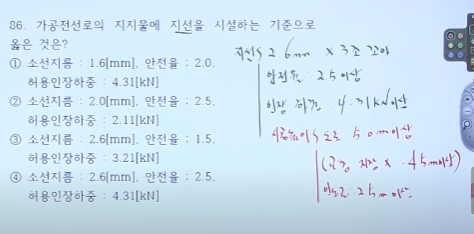 86. 가공전선로의 지지물에 지선을 시설하는 기준으로
옳은 것은?
① 소선지름 : 1.6[mm], 안전율 : 2.0,
허용인장하중 : 4.31[kN]
② 소선지름 : 2.0[mm], 안전율 : 2.5,
허용인장하중 : 2.11[kN]
③ 소선지름 : 2.6[mm], 안전율 : 1.5,
허용인장하중 : 3.21[kN]
④ 소선지름 : 2.6[mm], 안전율 : 2.5,
허용인장하중 : 4.31[kN]
지선 2.6mm × 3조 꼬아
안전율 : 2.5 이상
인장 하중 : 4.31kN 이상
도로 5.0m 이상
× 4.5m 이상)
2.5m 이상